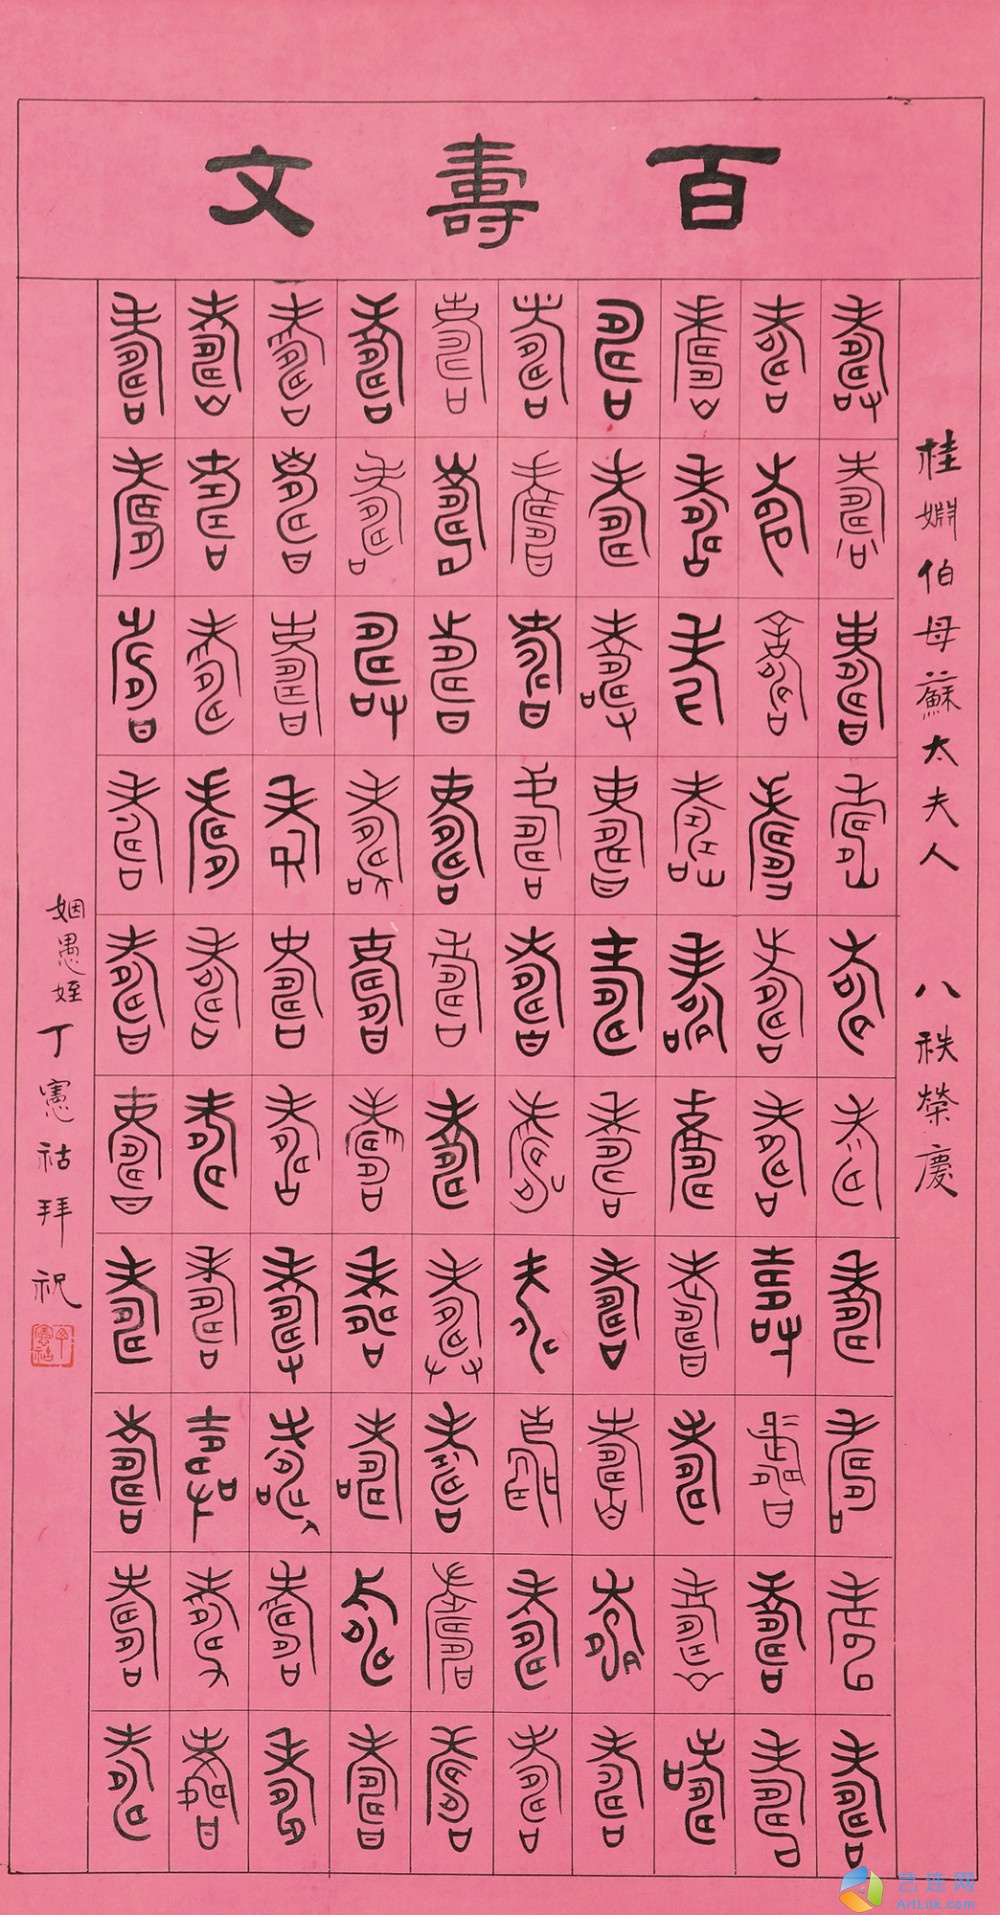 百壽文
桂婣伯母蘇太夫人 八秩榮慶
壽壽壽壽壽壽壽壽壽壽
壽壽壽壽壽壽壽壽壽壽
壽壽壽壽壽壽壽壽壽壽
壽壽壽壽壽壽壽壽壽壽
壽壽壽壽壽壽壽壽壽壽
壽壽壽壽壽壽壽壽壽壽
壽壽壽壽壽壽壽壽壽壽
壽壽壽壽壽壽壽壽壽壽
壽壽壽壽壽壽壽壽壽壽
壽壽壽壽壽壽壽壽壽壽
姻愚姪丁憲祜拜祝
艺连网
ArtLnk.com